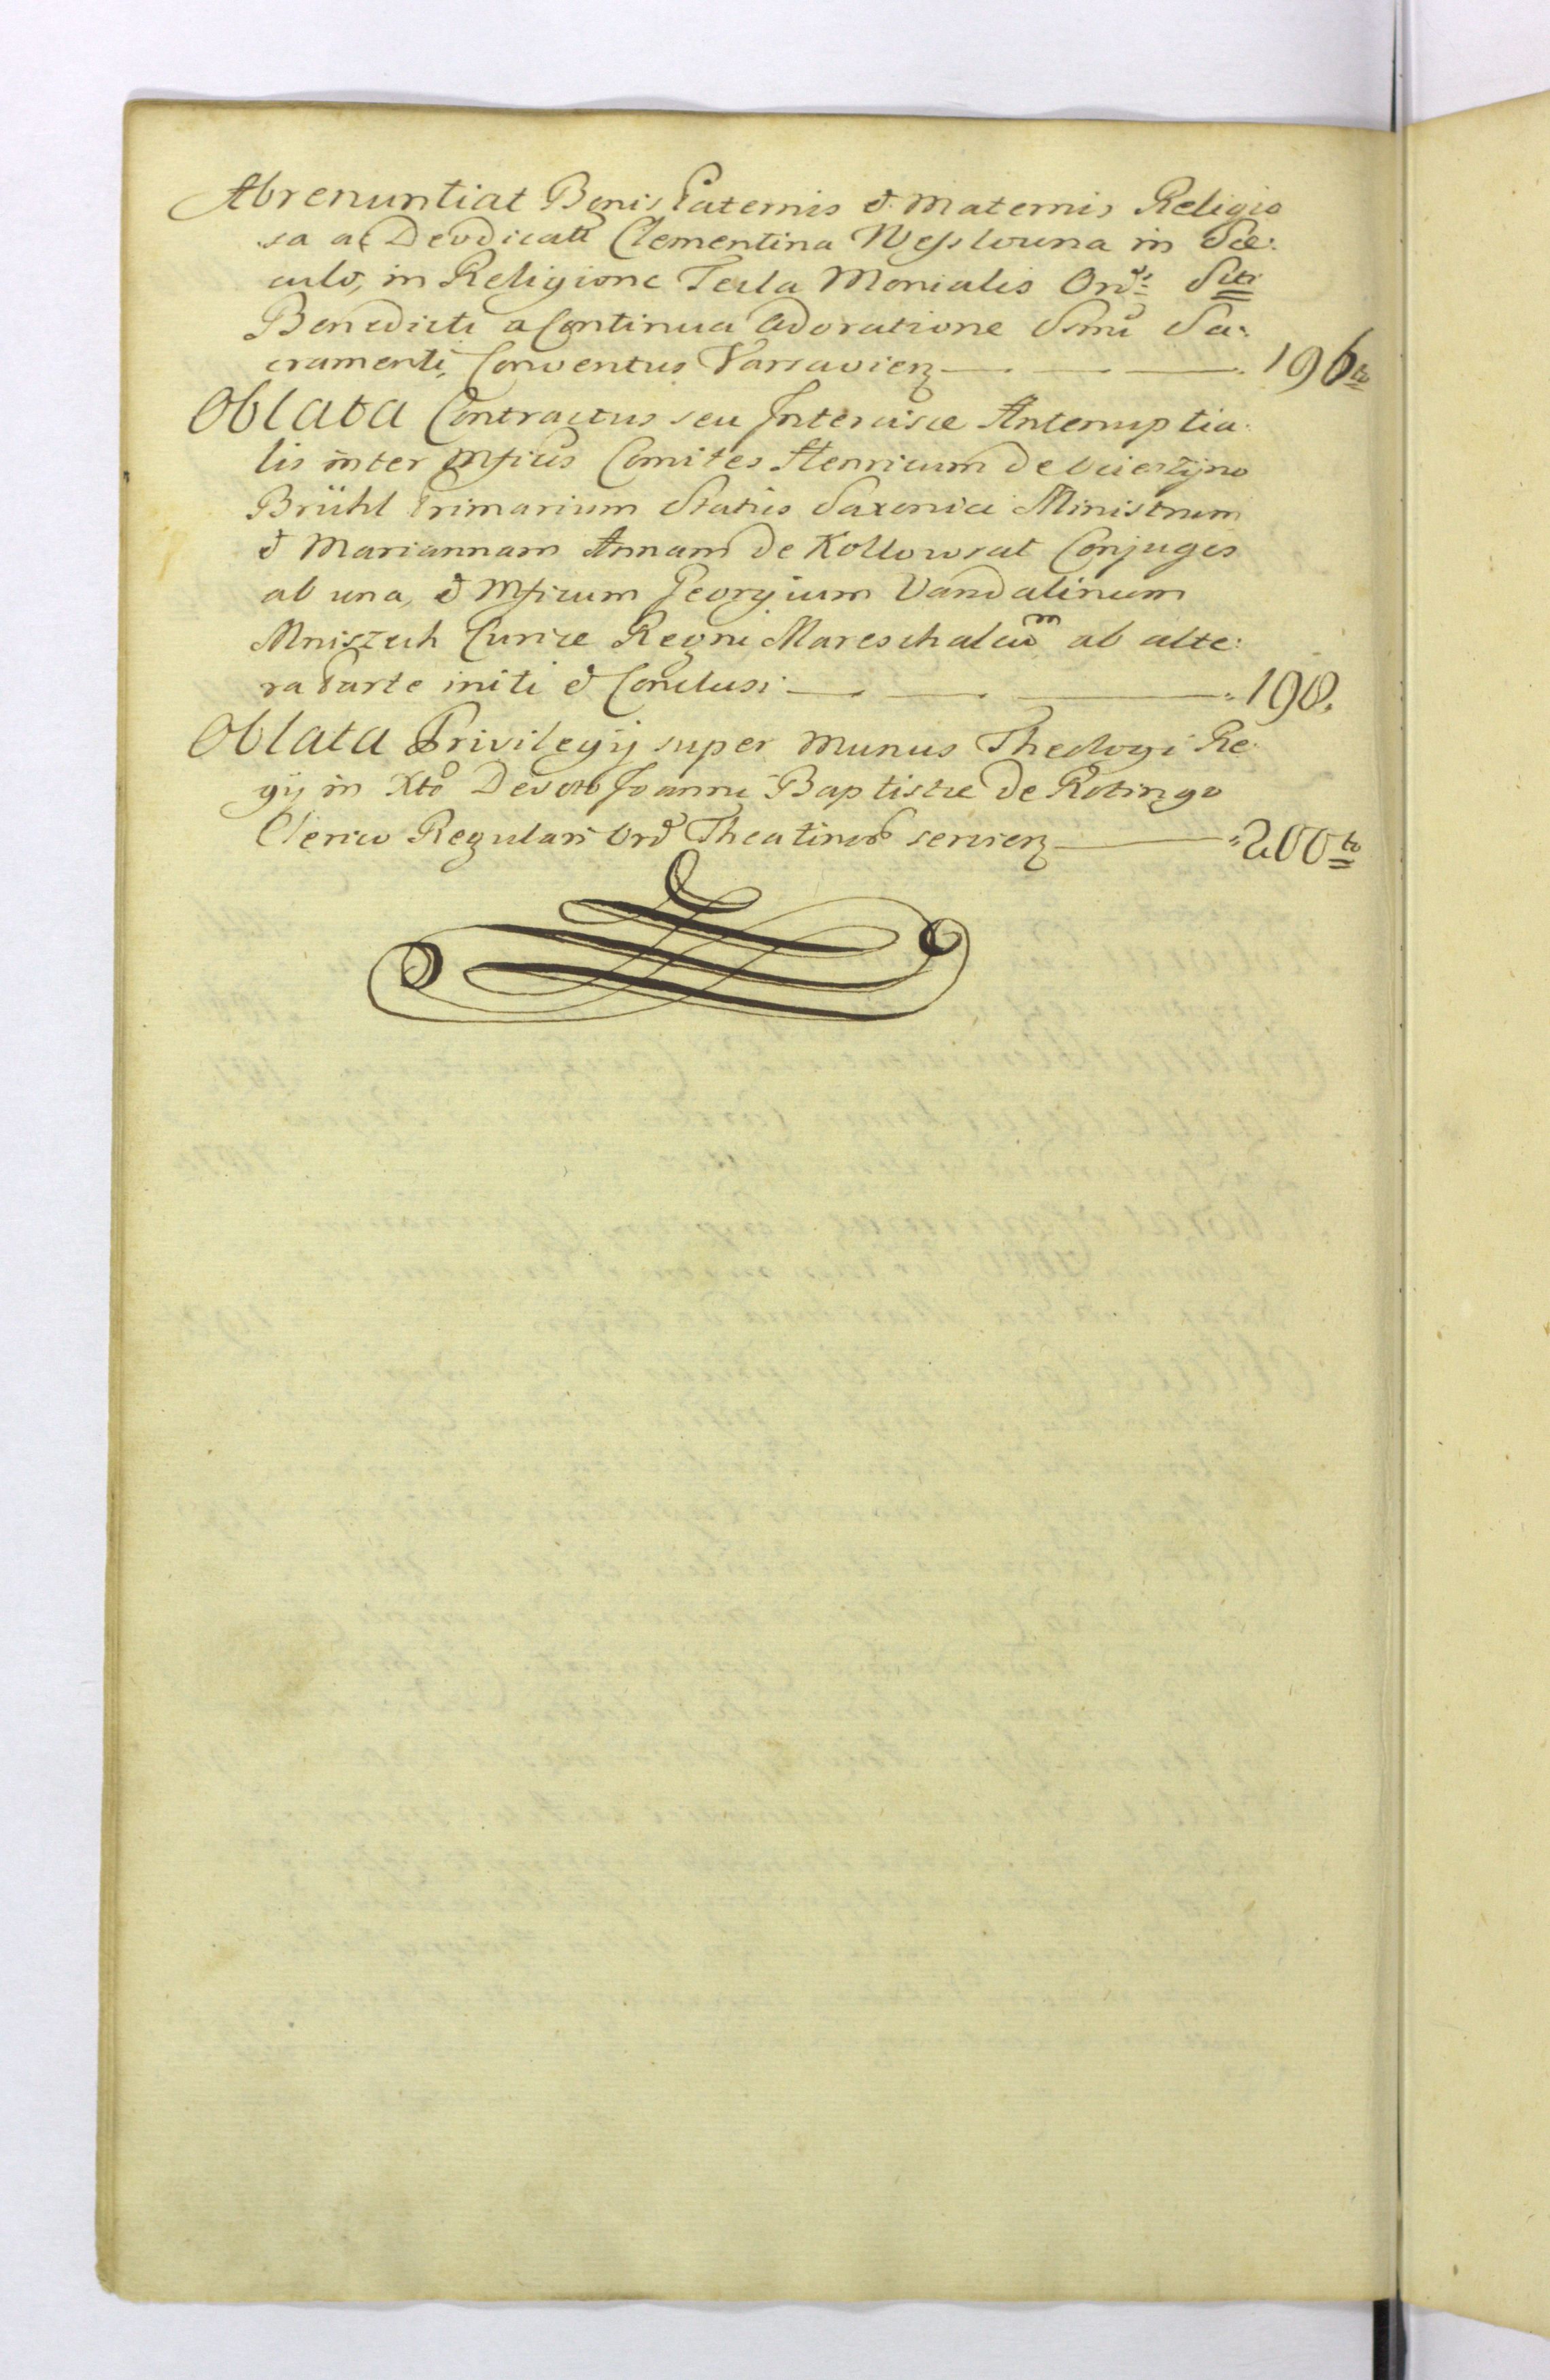 Abrenuntiat Bonis Paternis & Maternis Religio
sa ac Deodicata Clementina Wesslowna in Sæ:
culo, in Religione Tecla Monialis Ord̃s Sti
Benedicti a Continua Adoratione Ssmi Sa:
cramenti, Conventus Varsavien 196to
Oblata Contractus seu Intercisæ Antenuptia:
lis inter Mficos Comites Henricum de
Brühl Primarium Status Saxonici Ministrum
& Mariannam Annam de Kollowrat Conjuges
ab una, & Mficum Georgium Vandalinum
Mniszech Curiæ Regni Mareschalcum ab alte:
ra Parte initi & Conclusi 198.
Oblata Privilegij super Munus Theologi Re:
gij in Xto Devoto Joanni Baptistæ de Rotingo
Clerico Regulari Ord Theatinor servien 200to